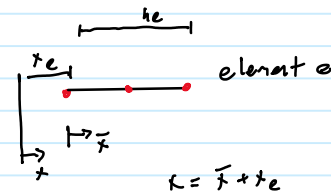 he
xe
element e
x̄
x
x = x̄ + xe